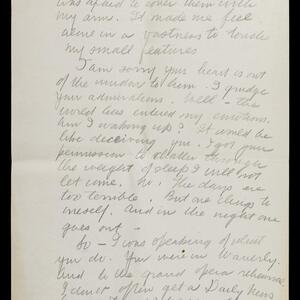 was afraid to cover them with
my arms. It made me feel
alone in a vastness to touch
my small features
I am sorry your heart is out
of the window to them. I judge
your admirations. Well - the
world has entered my emotions.
Am I waking up? It would be
like deceiving you. I got your
permission to clatter through
the weight of sleep I will not
let come. No. The days are
too terrible. But one clings to
oneself. And in the night one
goes out -
So - I was speaking of what
you do. You were in Waverly.
And to the grand opera rehearsal
I don't often get a Daily News